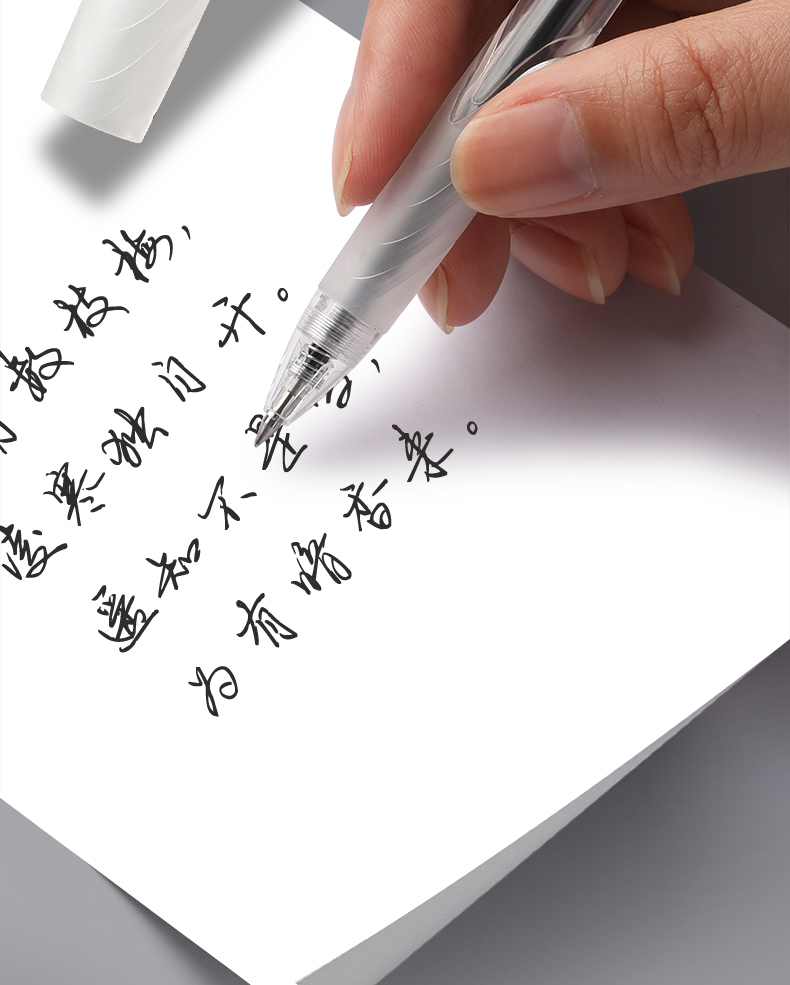 数枝梅,
凌寒独自开。
遥知不是,
为有暗香来。